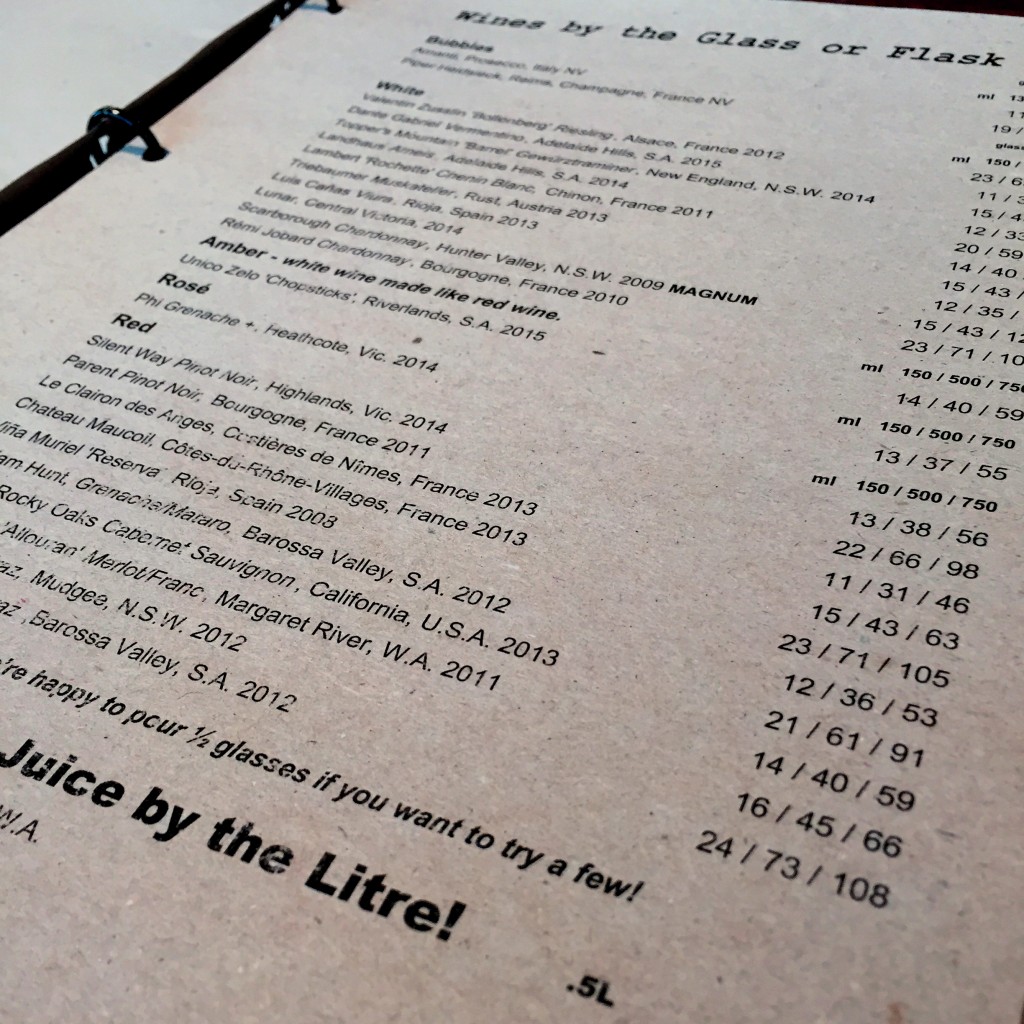 Wines by the Glass or Flask
Bubbles
Prosecco, Italy NV
Piper Heidsieck, Reims, Champagne, France NV
ml 13
11
19 /
glass
White
ml 150 /
Valentin Zusslin 'Bollenberg' Riesling, Alsace, France 2012
23 / 6
Dante Gabriel Vermentino, Adelaide Hills, S.A. 2015
11 / 3
Topper's Mountain 'Barrel' Gewürztraminer, New England, N.S.W. 2014
15 / 4
Landhaus Arneis, Adelaide Hills, S.A. 2014
12 / 33
Lambert 'Rochette' Chenin Blanc, Chinon, France 2011
20 / 59
Triebaumer Muskateller, Rust, Austria 2013
14 / 40
Luis Cañas Viura, Rioja, Spain 2013
15 / 43 /
Lunar, Central Victoria, 2014
12 / 35 /
Scarborough Chardonnay, Hunter Valley, N.S.W. 2009 MAGNUM
15 / 43 / 12
Rémi Jobard Chardonnay, Bourgogne, France 2010
23 / 71 / 10
Amber - white wine made like red wine.
ml 150 / 500 / 750
Unico Zelo 'Chopsticks', Riverlands, S.A. 2015
14 / 40 / 59
Rosé
ml 150 / 500 / 750
Phi Grenache +, Heathcote, Vic. 2014
13 / 37 / 55
Red
ml 150 / 500 / 750
Silent Way Pinot Noir, Highlands, Vic. 2014
13 / 38 / 56
Parent Pinot Noir, Bourgogne, France 2011
22 / 66 / 98
Le Clairon des Anges, Costières de Nîmes, France 2013
11 / 31 / 46
Chateau Maucoil, Côtes-du-Rhône-Villages, France 2013
15 / 43 / 63
iña Muriel 'Reserva' Rioja, Spain 2008
23 / 71 / 105
am Hunt, Grenache/Mataro, Barossa Valley, S.A. 2012
12 / 36 / 53
Rocky Oaks Cabernet Sauvignon, California, U.S.A. 2013
21 / 61 / 91
'Allouran' Merlot/Franc, Margaret River, W.A. 2011
14 / 40 / 59
az, Mudgee, N.S.W. 2012
16 / 45 / 66
az, Barossa Valley, S.A. 2012
24 / 73 / 108
're happy to pour ½ glasses if you want to try a few!
Juice by the Litre!
W.A.
.5L